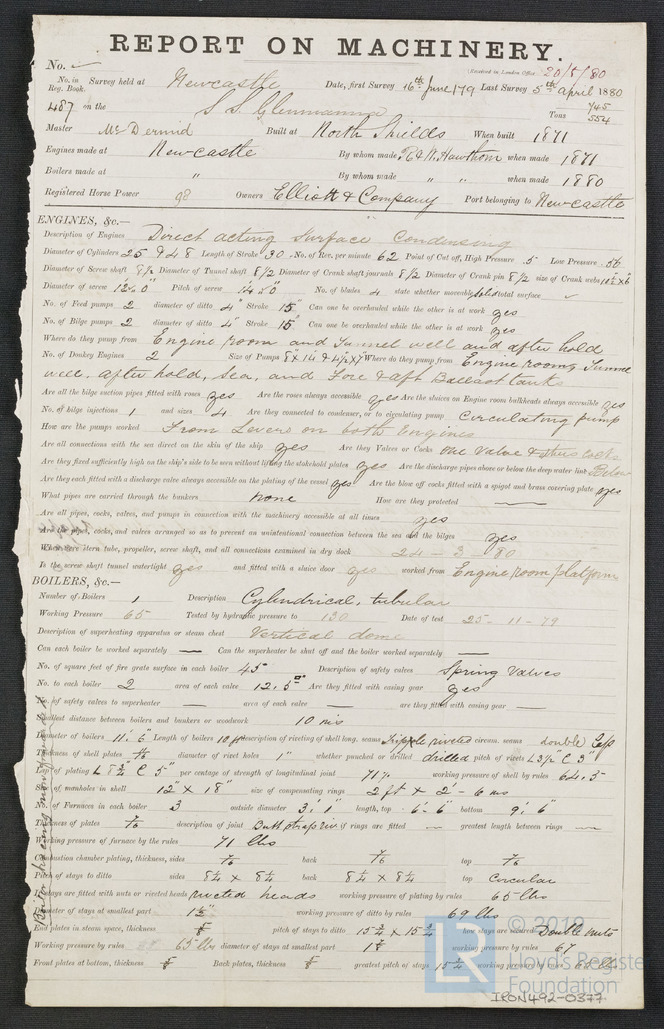 REPORT ON MACHINERY.
No.
(Received in London Office 20/5/80
No. in Reg. Book. Survey held at Newcastle Date, first Survey 16th June /79 Last Survey 5th April 1880
487 on the S.S. Tons 745 554
Master Mc Dermid Built at North Shields When built 1871
Engines made at Newcastle By whom made R & W. Hawthorn when made 1871
Boilers made at " By whom made " " when made 1880
Registered Horse Power 98 Owners Elliott & Company Port belonging to Newcastle
ENGINES, &c.—
Description of Engines Direct acting Surface Condensing
Diameter of Cylinders 25 & 48 Length of Stroke 30 No. of Rev. per minute 62 Point of Cut off, High Pressure .5 Low Pressure .56
Diameter of Screw shaft 8 1/2 Diameter of Tunnel shaft 8 1/2 Diameter of Crank shaft journals 8 1/2 Diameter of Crank pin 8 1/2 size of Crank webs
Diameter of screw Pitch of screw No. of blades 4 state whether moveable solid total surface
No. of Feed pumps 2 diameter of ditto 4" Stroke 15" Can one be overhauled while the other is at work yes
No. of Bilge pumps 2 diameter of ditto 4" Stroke 15" Can one be overhauled while the other is at work yes
Where do they pump from Engine Room and Tunnel well and after hold
No. of Donkey Engines 2 Size of Pumps Where do they pump from Engine room, Tunnel
well, after hold, Sea, and Fore & aft Ballast tanks
Are all the bilge suction pipes fitted with roses yes Are the roses always accessible yes Are the sluices on Engine room bulkheads always accessible yes
No. of bilge injections 1 and sizes 4 Are they connected to condenser, or to circulating pump Circulating pump
How are the pumps worked From Levers on both Engines
Are all connections with the sea direct on the skin of the ship yes Are they Valves or Cocks one valve &
Are they fixed sufficiently high on the ship's side to be seen without lifting the stokehold plates yes Are the discharge pipes above or below the deep water line Below
Are they each fitted with a discharge valve always accessible on the plating of the vessel yes Are the blow off cocks fitted with a spigot and brass covering plate yes
What pipes are carried through the bunkers none How are they protected —
Are all pipes, cocks, valves, and pumps in connection with the machinery accessible at all times yes
Are the pipes, cocks, and valves arranged so as to prevent an unintentional connection between the sea and the bilges yes
When were stern tube, propeller, screw shaft, and all connections examined in dry dock 24 - 3 - 80
Is the screw shaft tunnel watertight yes and fitted with a sluice door yes worked from Engine room platform
BOILERS, &c.—
Number of Boilers 1 Description Cylindrical, tubular
Working Pressure 65 Tested by hydraulic pressure to 130 Date of test 25 - 11 - 79
Description of superheating apparatus or steam chest Vertical dome
Can each boiler be worked separately — Can the superheater be shut off and the boiler worked separately —
No. of square feet of fire grate surface in each boiler 45 Description of safety valves Spring Valves
No. to each boiler 2 area of each valve 12.5 Are they fitted with easing gear yes
No. of safety valves to superheater — area of each valve — are they fitted with easing gear —
Smallest distance between boilers and bunkers or woodwork 10 ins
Diameter of boilers 11'. 6" Length of boilers 10 ft description of riveting of shell long. seams Tripple riveted circum. seams double Lap
Thickness of shell plates diameter of rivet holes 1" whether punched or drilled drilled pitch of rivets L 3 1/2" C 3"
Lap of plating L 8 3/4" C 5" per centage of strength of longitudinal joint 71% working pressure of shell by rules 64.5
Size of manholes in shell 12" x 18" size of compensating rings 2 ft x 2' - 6 ins
No. of Furnaces in each boiler 3 outside diameter 3'. 1" length, top 6'. 6" bottom 9'. 6"
Thickness of plates 7/16 description of joint Butt strap riv. if rings are fitted — greatest length between rings —
Working pressure of furnace by the rules 71 lbs
Combustion chamber plating, thickness, sides 7/16 back 7/16 top 7/16
Pitch of stays to ditto sides 8 1/4 x 8 1/4 back 8 1/4 x 8 1/4 top Circular
If stays are fitted with nuts or riveted heads riveted heads working pressure of plating by rules 65 lbs
Diameter of stays at smallest part working pressure of ditto by rules 69 lbs
End plates in steam space, thickness pitch of stays to ditto 15 3/4 x 15 3/4 how stays are secured Double nuts
Working pressure by rules 65 lbs diameter of stays at smallest part working pressure by rules 67
Front plates at bottom, thickness Back plates, thickness greatest pitch of stays 15 1/4 working pressure by rules 68 lbs
LR
© 2019
Lloyd's Register
Foundation
IRON492-0377